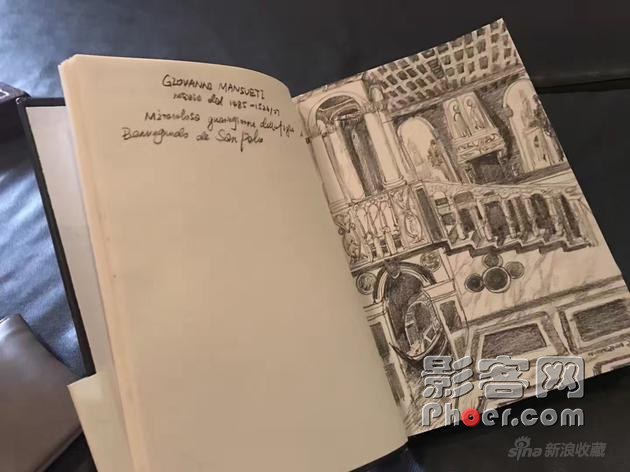 GIOVANNI MANSUETI
notizie dal 1485-1526/27
Miracolosa guarigione della figlia di
Benvegnudo da San Polo
影客网
Phoer.com
sina 新浪收藏